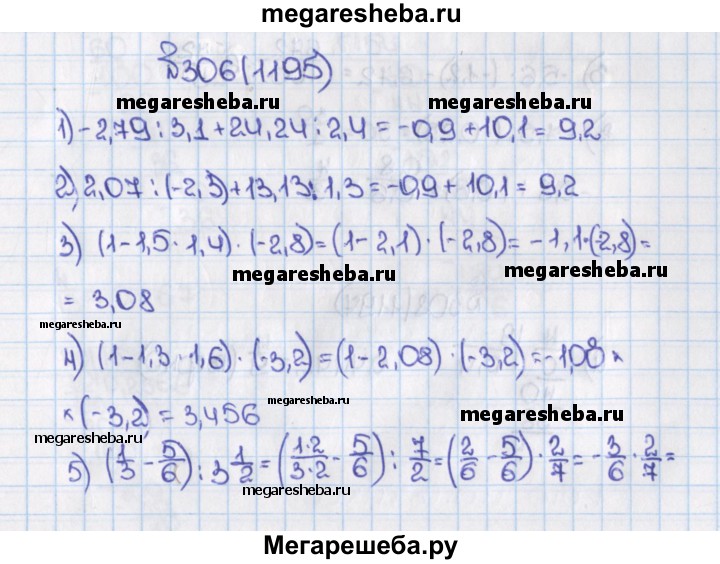 megaresheba.ru
№306(1195)
megaresheba.ru megaresheba.ru
1) -2,79:3,1+24,24:2,4=-0,9+10,1=9,2
2) 2,07:(-2,3)+13,13:1,3=-0,9+10,1=9,2
3) (1-1,5·1,4)·(-2,8)=(1-2,1)·(-2,8)=-1,1·(-2,8)=
megaresheba.ru megaresheba.ru
=3,08
megaresheba.ru megaresheba.ru
4) (1-1,3·1,6)·(-3,2)=(1-2,08)·(-3,2)=-1,08×
×(-3,2)=3,456
megaresheba.ru megaresheba.ru
megaresheba.ru
5) (1/3-5/6):3 1/2=(1·2/3·2-5/6):7/2=(2/6-5/6)·2/7=-3/6·2/7=
megaresheba.ru
Мегарешеба.ру